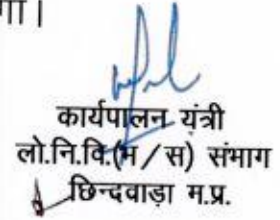 कार्यपालन यंत्री
लो.नि.वि.(भ/स) संभाग
छिन्दवाड़ा म.प्र.